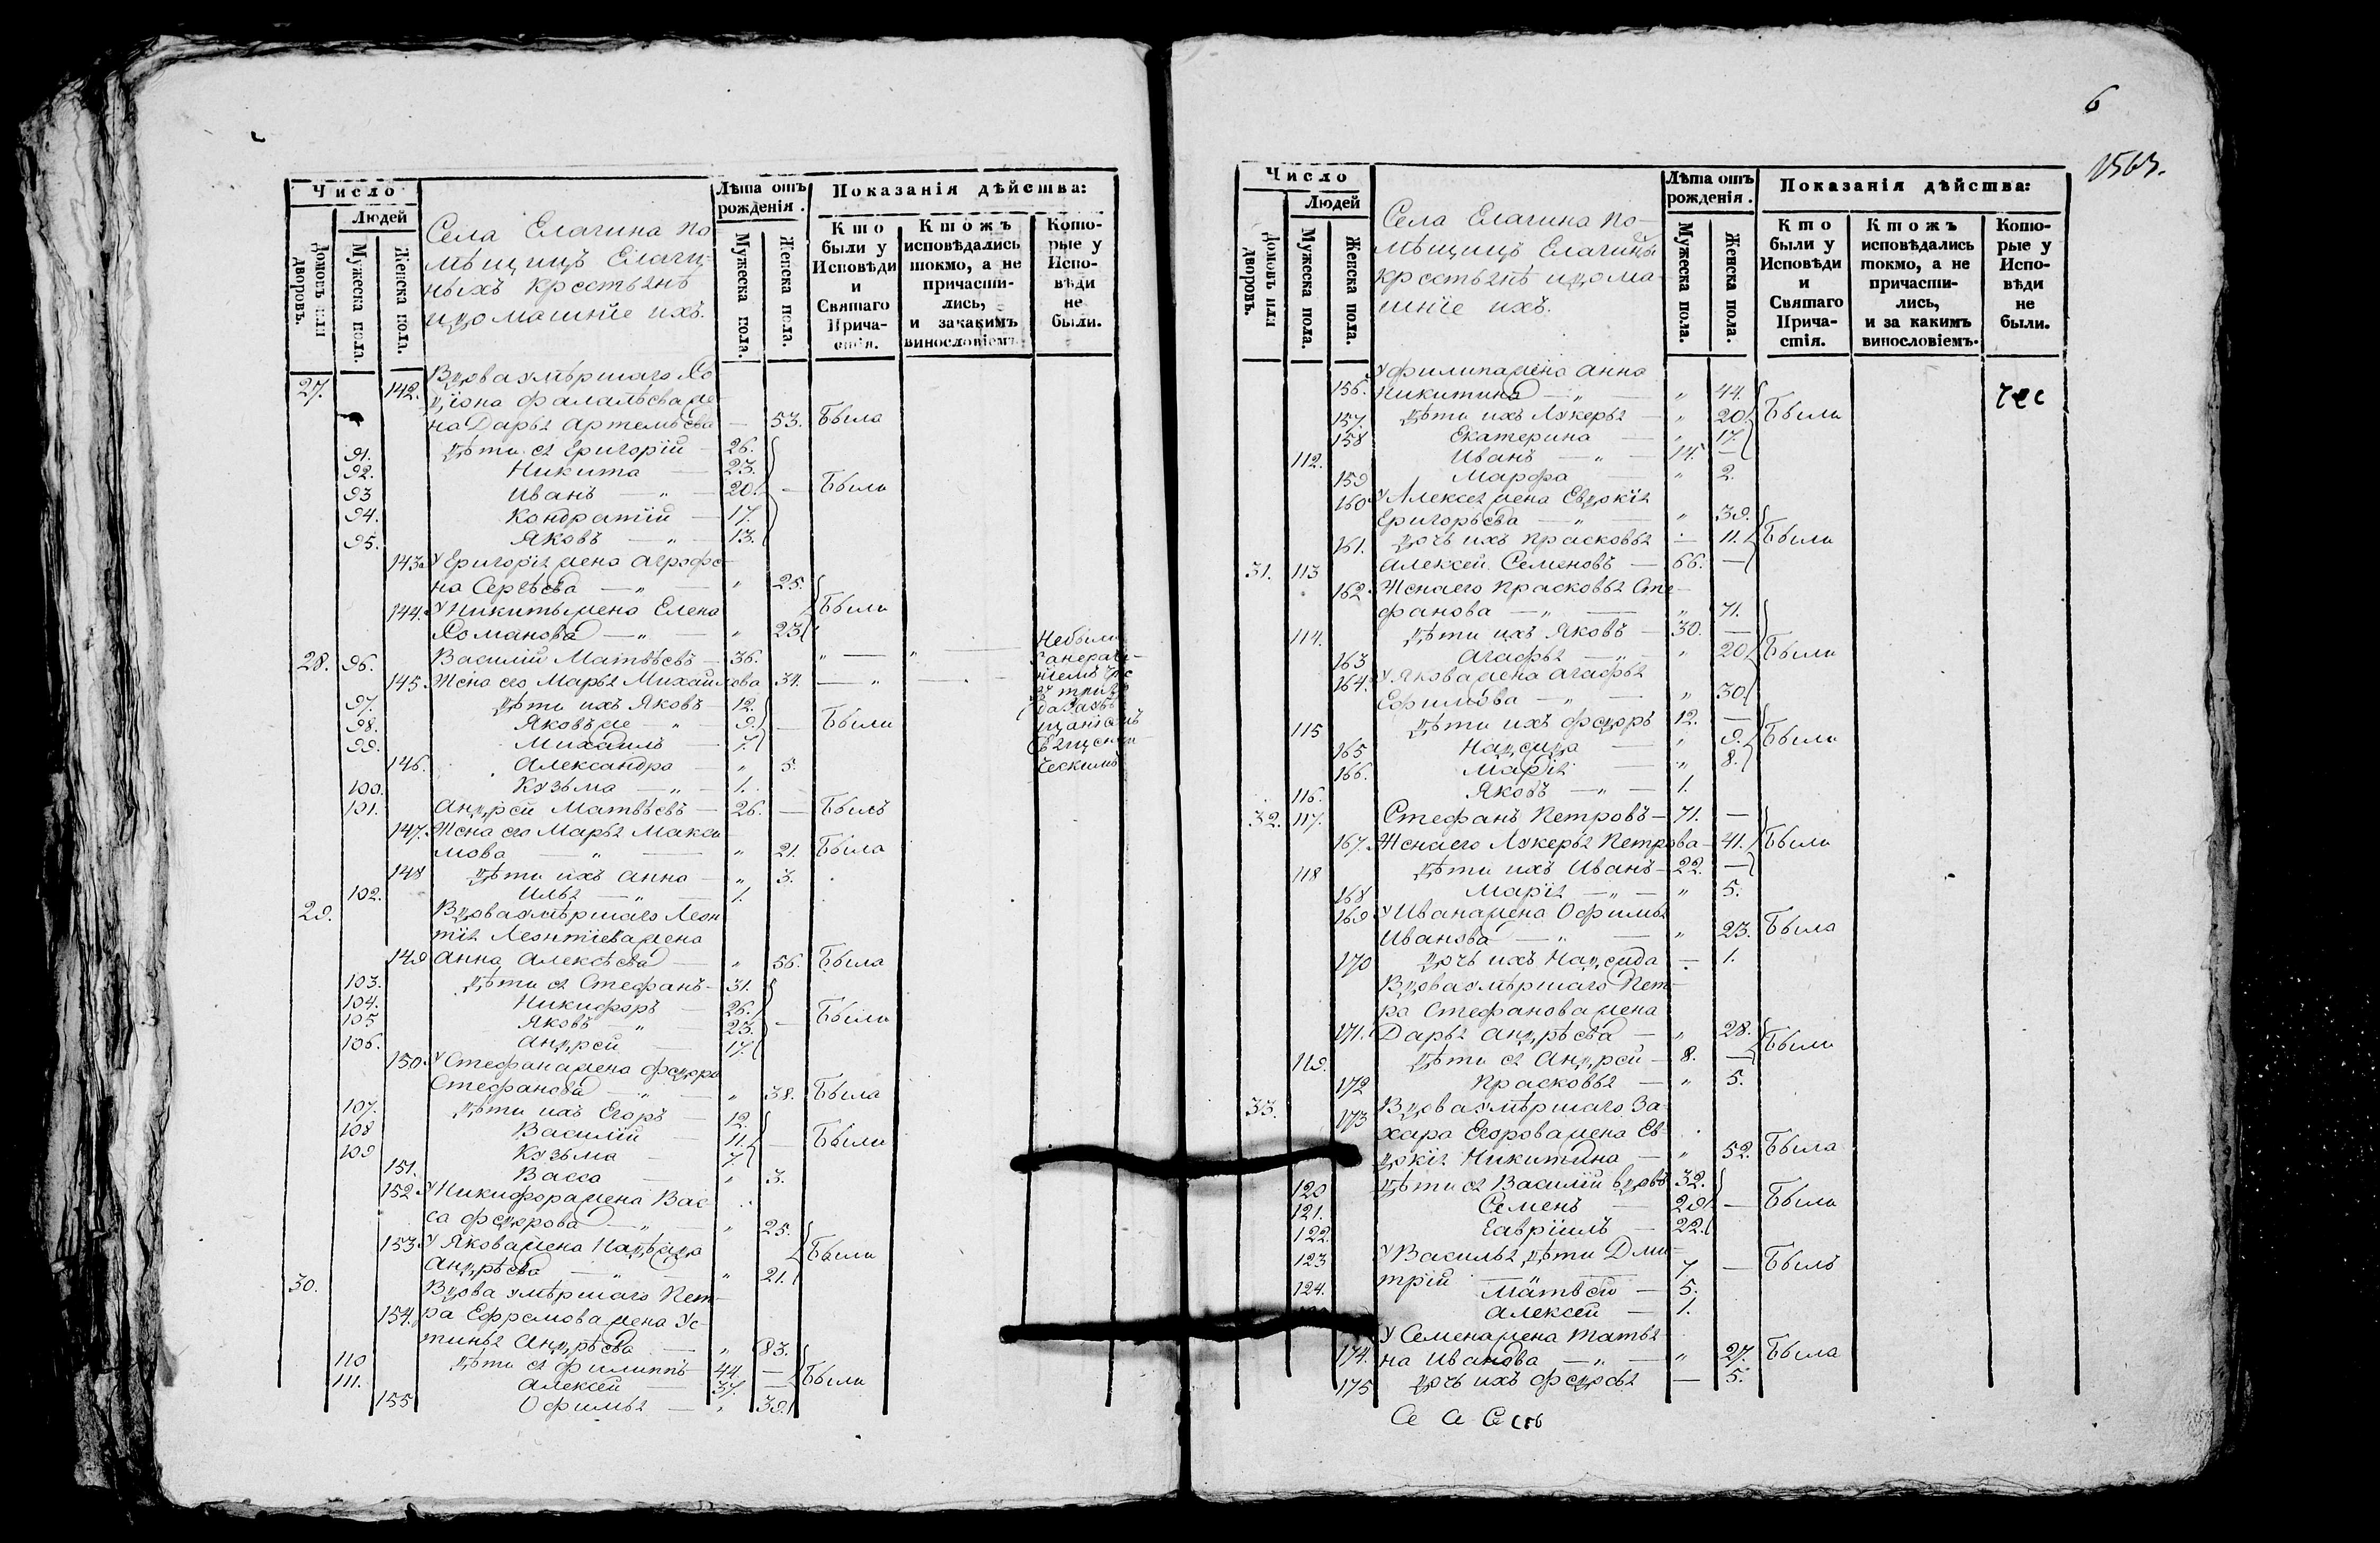 Число
Людей
Домовъ или дворовъ.
Мужеска пола.
Женска пола.
Села Елагина по
мѣщицъ Елаги-
ныхъ крестьянѣ
идомашнїе ихъ.
Лѣта отъ
рожденія.
Мужеска пола.
Женска пола.
Показанія дѣйства:
Кто
были у
Исповѣди
и
Святаго
Прича-
стія.
Ктожъ
исповѣдались
токмо, а не
причасти-
лись,
и закакимъ
винословіемъ.
Кото-
рые у
Испо-
вѣди
не
были.
27. 142. Вдоваумѣршаго
жена Дарья Артемьева — 53. Была
91. дѣти ея Григорій — 26.
92. Никита — 23.
93 Иванъ — „ — 20. — Были
94. Кондратїй — 17.
95. Яковъ — „ — 13.
143. У Григорія жена Агрофе-
на Сергѣева — „ — „ 25.
144. У Никиты жена Елена Были
Романова — „ — „ 23.
28. 96. Василій Матвѣевъ — 36. „ — „ — Небыли
145. Жена его Марья Михайлова 34. — „ —
97. дѣти ихъ Яковъ — 12.
98. Яковъже „ 9. — Были
99. Михаилъ — 7.
146. Александра — „ 5.
100. Кузьма — „ — 1.
101. Андрей Матвѣевъ — 26. — Былъ
147. Жена его Марья Макси
мова — „ — „ 21. Была
148 дѣти ихъ Анна — „ 3.
102. Илья — „ — 1.
29. Вдоваумѣршаго Леон
тія Леонтїеважена
149 Анна Алексѣева — „ 56. Была
103. дѣти ея Стефанъ — 31.
104. Никифоръ — 26.
105 Яковъ — „ 23. — Были
106. Андрей — 17.
150. У Стефанажена Федора
Стефанова — „ — „ 38. Была
107. дѣти ихъ Егоръ — 12.
108 Василій — 11. — Были
109 Кузьма — 7.
151. Васса — „ 3.
152. У Никифоражена Вас-
са Федорова — „ — „ 25.
153. У Яковажена Были
Андрѣева — „ — „ 21.
30. Вдоваумѣршаго Пет-
154. ра Ефремоважена Ус-
тинья Андрѣева — „ 83.
110 дѣти ея Филиппъ 44. —
111. Алексѣй — 37. — Были
155 Офимья — „ 39.
6
Число
Людей
Домовъ или дворовъ.
Мужеска пола.
Женска пола.
Села Елагина по-
мѣщицъ Елагиныхъ
крестьянѣ идома
шнїе ихъ.
Лѣта отъ
рожденія.
Мужеска пола.
Женска пола.
Показанія дѣйства:
Кто
были у
Исповѣди
и
Святаго
Прича-
стія.
Ктожъ
исповѣдались
токмо, а не
причасти-
лись,
и за какимъ
винословіемъ.
Кото-
рые у
Испо-
вѣди
не
были.
У Филипажена Анна
156. Никитина — „ — „ 44.
157. дѣти ихъ Лукерья — „ 20. Были
158 Екатерина — „ 17.
112. Иванъ — „ — 14. —
159 Марфа — „ 2.
160 У Алексея жена Евдокія
Григорьева — „ — „ 39.
161. дочь ихъ Прасковья — 11. Были
31. 113 Алексѣй Семеновъ — 66. —
162 Женаего Прасковья Сте-
фанова — „ — „ 71.
114. дѣти ихъ Яковъ — 30. —
163 Агафья — „ — „ 20. Были
164. У Яковажена Агафья
Ефимова — „ — „ 30.
115 дѣти ихъ Федоръ 12. —
165 — „ 9. Были
166. Марїя — „ 8.
116. Яковъ — „ — 1.
32. 117. Стефанъ Петровъ — 71. —
167. Женаего Лукерья Петрова — 41. Были
118 дѣти ихъ Иванъ — 22. —
168 Марїя — „ — „ 5.
169 У Иванажена Офимья
Иванова — „ — „ 23. Была
170 дочь ихъ — 1.
Вдоваумѣршаго Пет-
ра Стефановажена
171. Дарья Андрѣева — „ 28.
119. дѣти ея Андрей — 8. — Были
172 Прасковья — „ 5.
33. 173 Вдоваумѣршаго За
хара Егороважена Ев-
докія Никитина — „ 52. Была
120 дѣти ея Василій вдовъ 32.
121. Семенъ — 29. — Были
122. Гаврїилъ — 22.
123 У Василья дѣти Дми-
трїй 7 — Былъ
124. Матвѣй — 5.
Алексѣй — 1.
У Семенажена Татья
174. на Иванова — „ — „ 27. Была
175 дочь ихъ Федосья — 5.